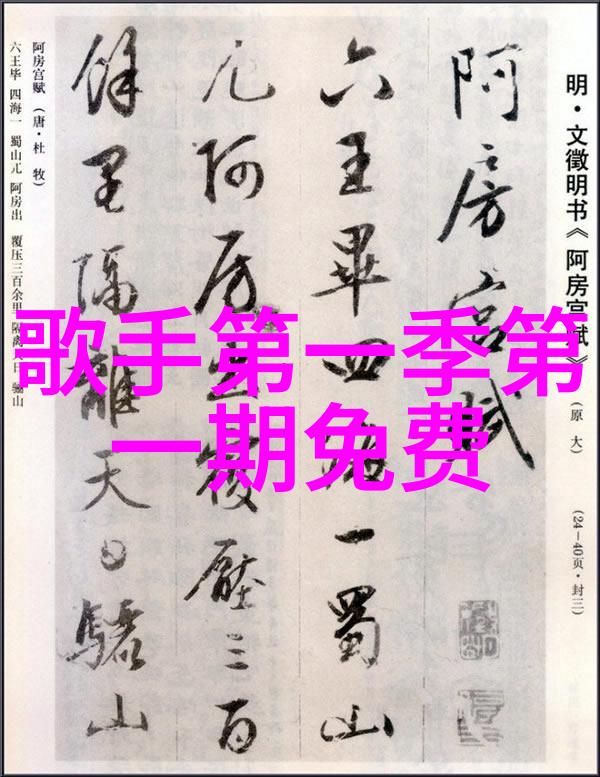 歌手第一季第
一期免费
明·文徵明书《阿房宫赋》
(原大)
(24—40页·封三)
阿房宫赋
六王畢四海一蜀山
兀阿房出覆壓三百
餘里隔離天日驪山
阿房宫赋(唐·杜牧)
六王毕 四海一 蜀山兀 阿房出 覆压三百余里 隔离天日 骊山